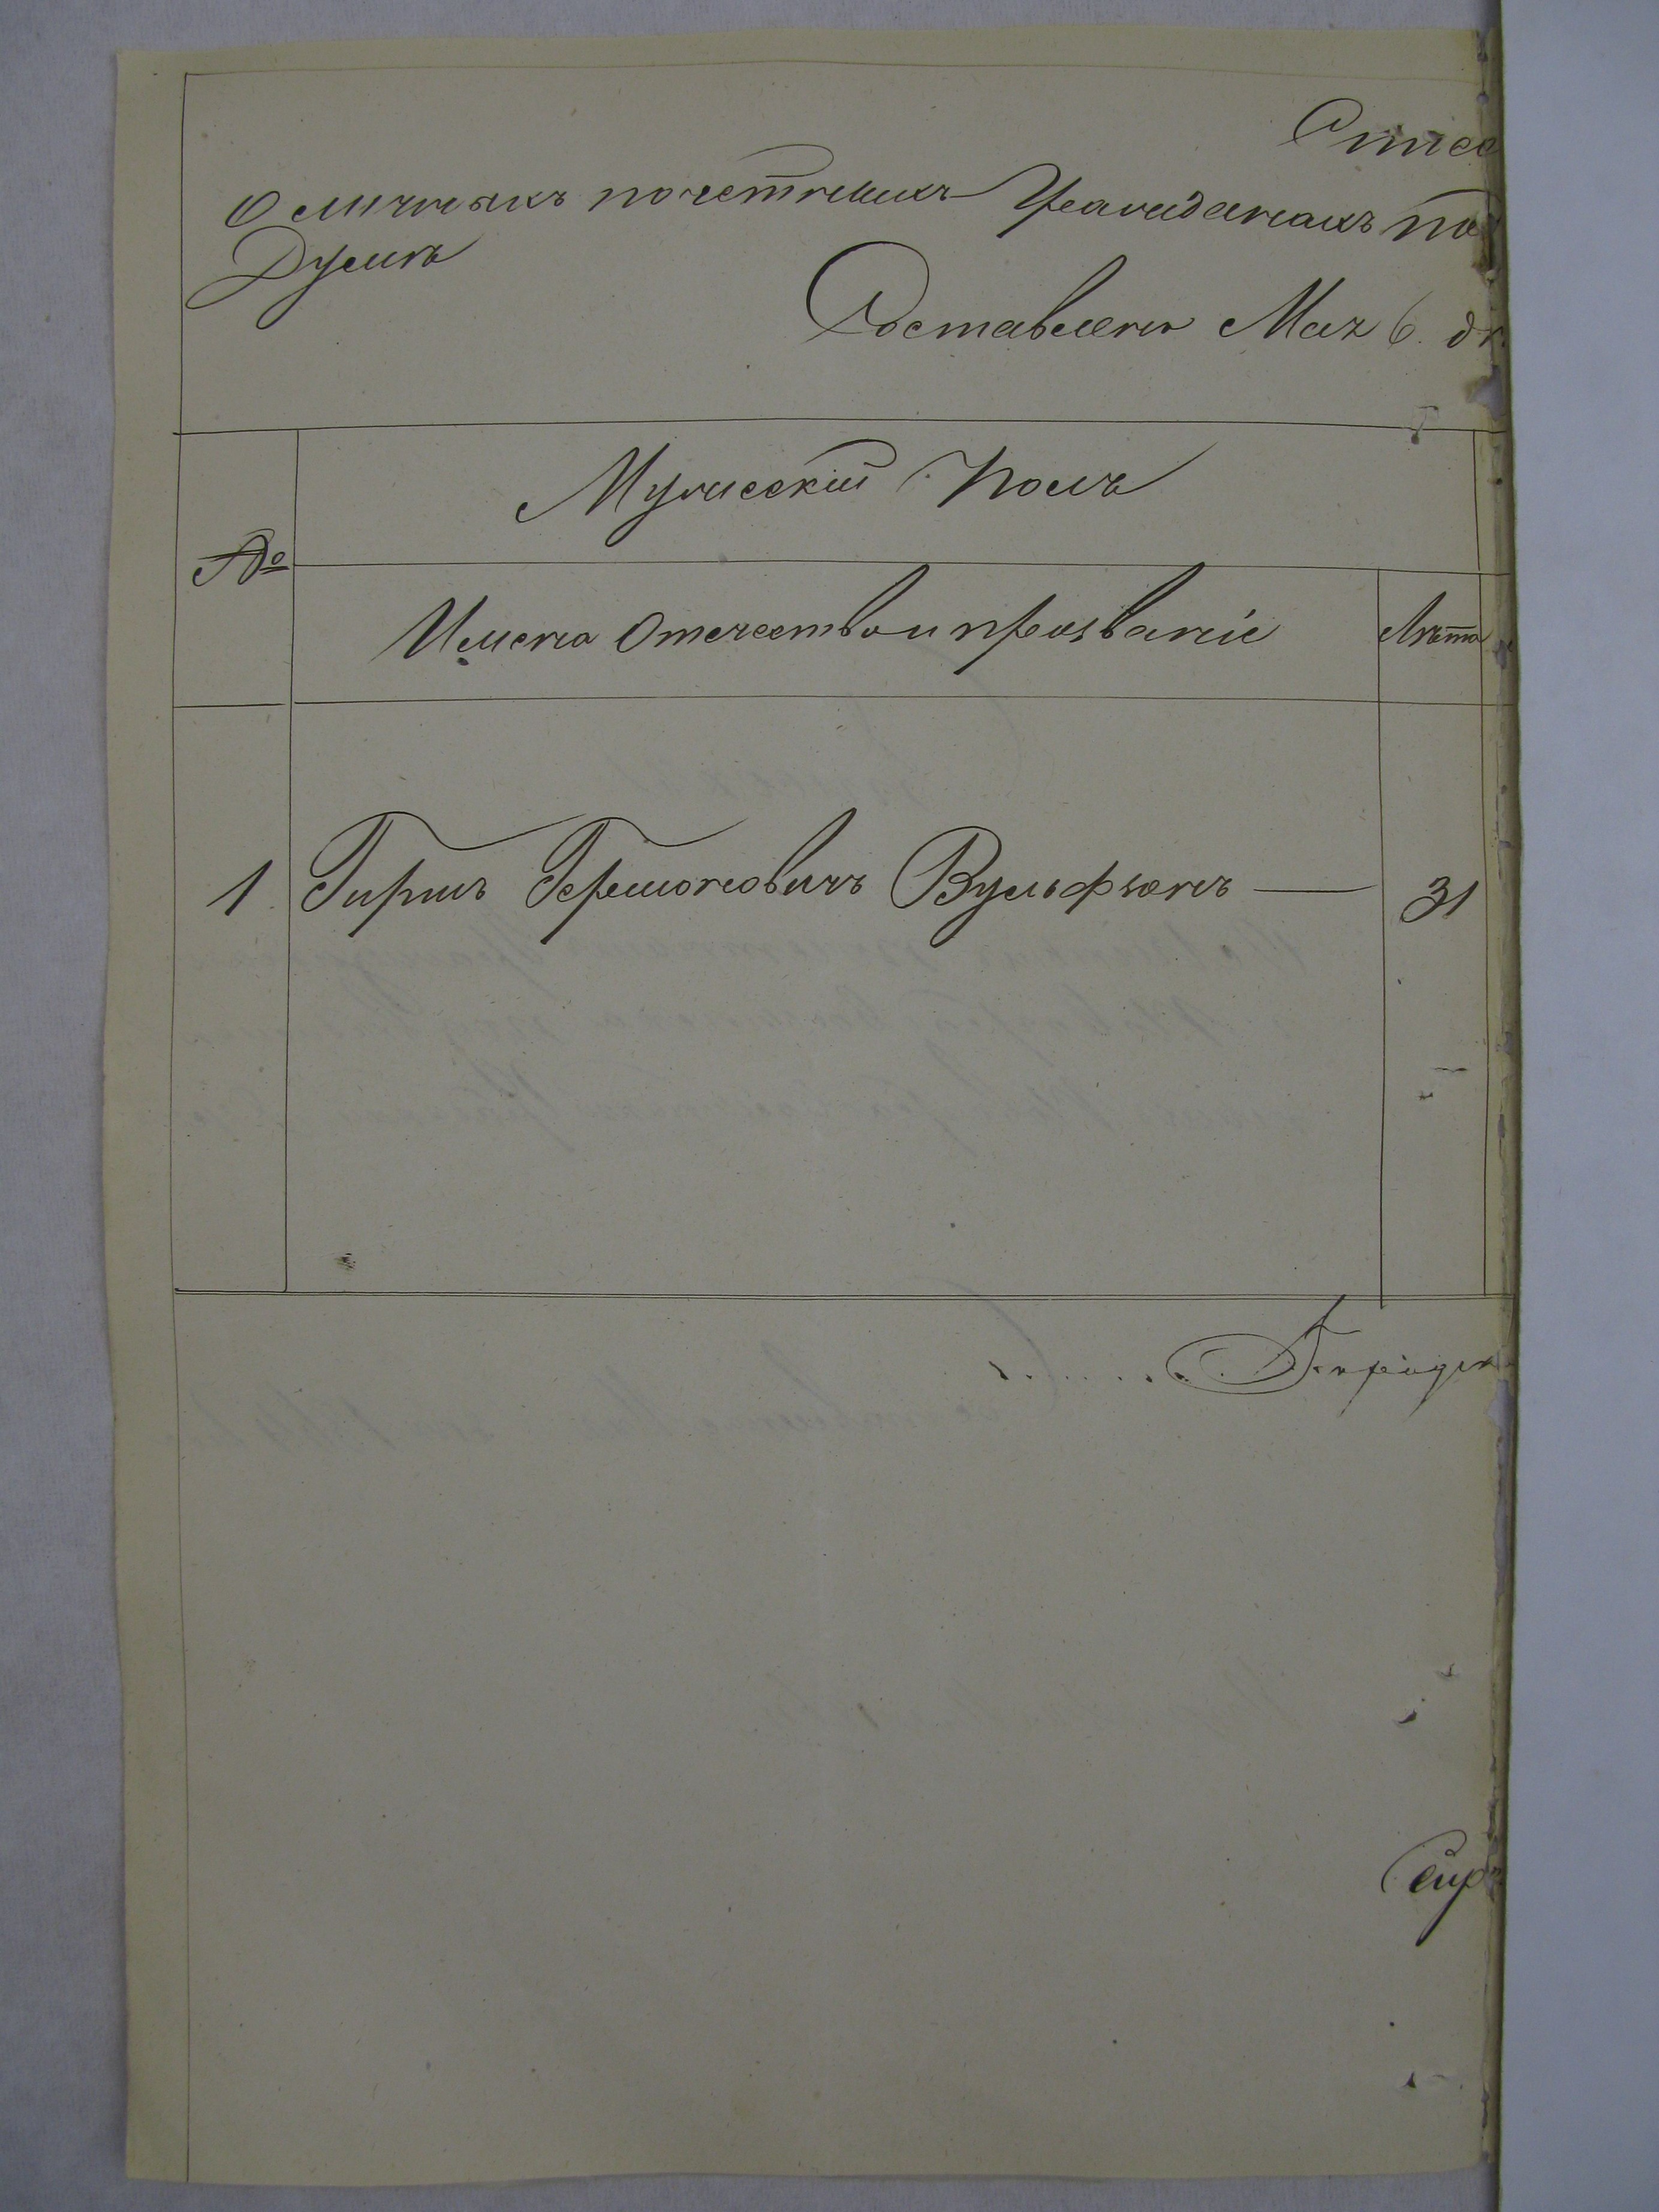 Списо
О личныхъ почетныхъ Гражданахъ по
Думѣ
Составленъ Мая 6. д
Мужескій Полъ
№
Имена Отчество и прозваніе
Лѣта
1 Гиршъ Гершоновичъ Вульфзонъ — 31